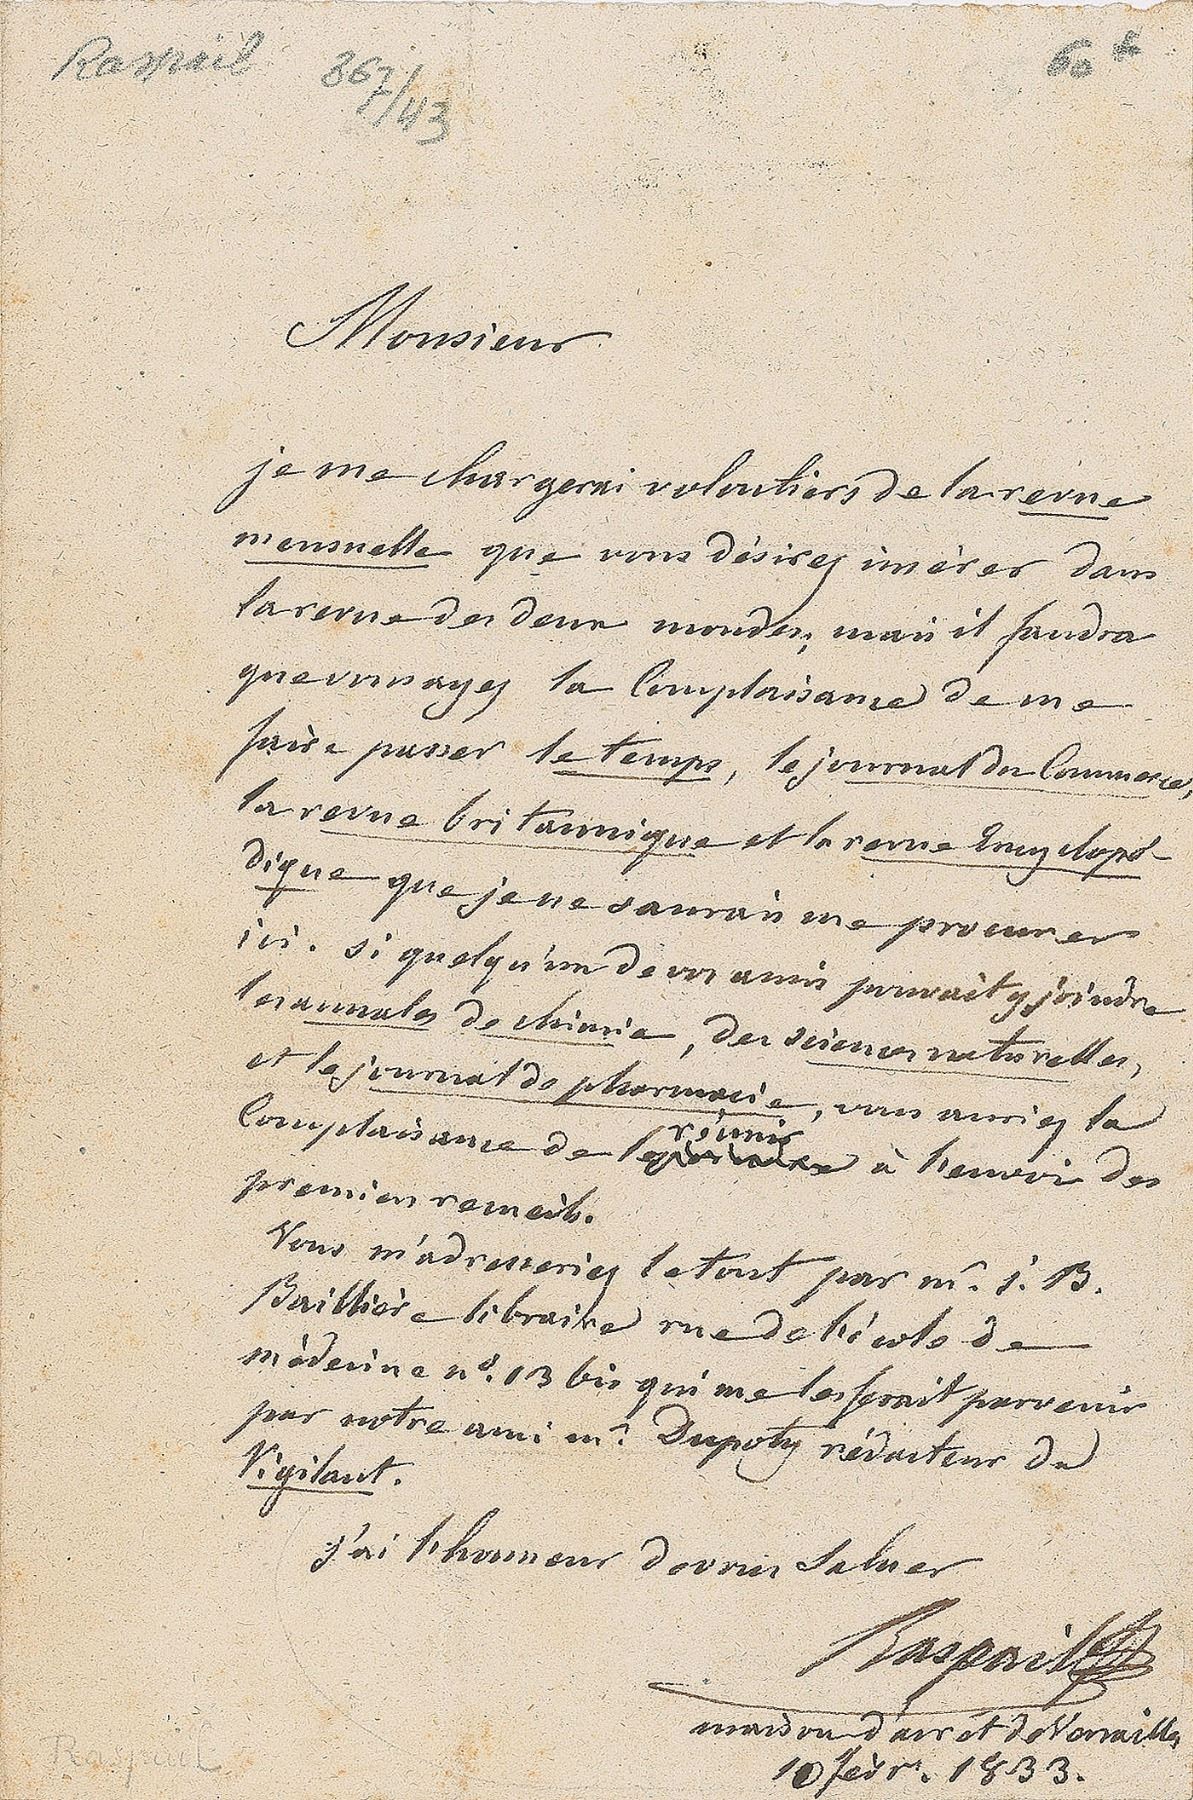 Raspail 367/43
Monsieur
je me chargerai volontiers de la revue
mensuelle que vous désirez insérer dans
la revue des deux mondes; mais il faudra
que vous ayez la Complaisance de me
faire passer le temps, le journal du Commerce,
la revue britannique et la revue Encyclopé-
dique que je ne saurais me procurer
ici. si quelqu'un de vos amis pouvait y joindre
les annales de chimie, des sciences naturelles,
et le journal de pharmacie, vous auriez la
Complaisance de les réunir à l'envoi des
premiers recueils.
Vous m'adresseriez le tout par mr. j. B.
Baillière libraire rue de l'école de
médecine no. 13 bis qui me les ferait parvenir
par notre ami mr. Dupoty rédacteur du
Vigilant.
j'ai l'honneur de vous Saluer
Raspail
maison d'arrêt de Versailles
10 févr. 1833.
Raspail